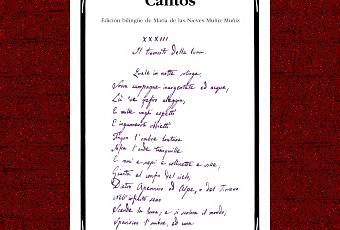 Cantos
Edición bilingüe de María de las Nieves Muñiz Muñiz
XXXIII.
Il tramonto della luna.
Quale in notte solinga,
Sovra campagne inargentate ed acque,
Là 've zefiro aleggia,
E mille vaghi aspetti
E ingannevoli obbietti
Fingon l'ombre lontane
Infra l'onde tranquille
E rami e siepi e collinette e ville;
Giunta al confin del cielo,
Dietro Apennino od Alpe, o del Tirreno
Nell'infinito seno
Scende la luna; e si scolora il mondo;
Spariscon l'ombre, ed una